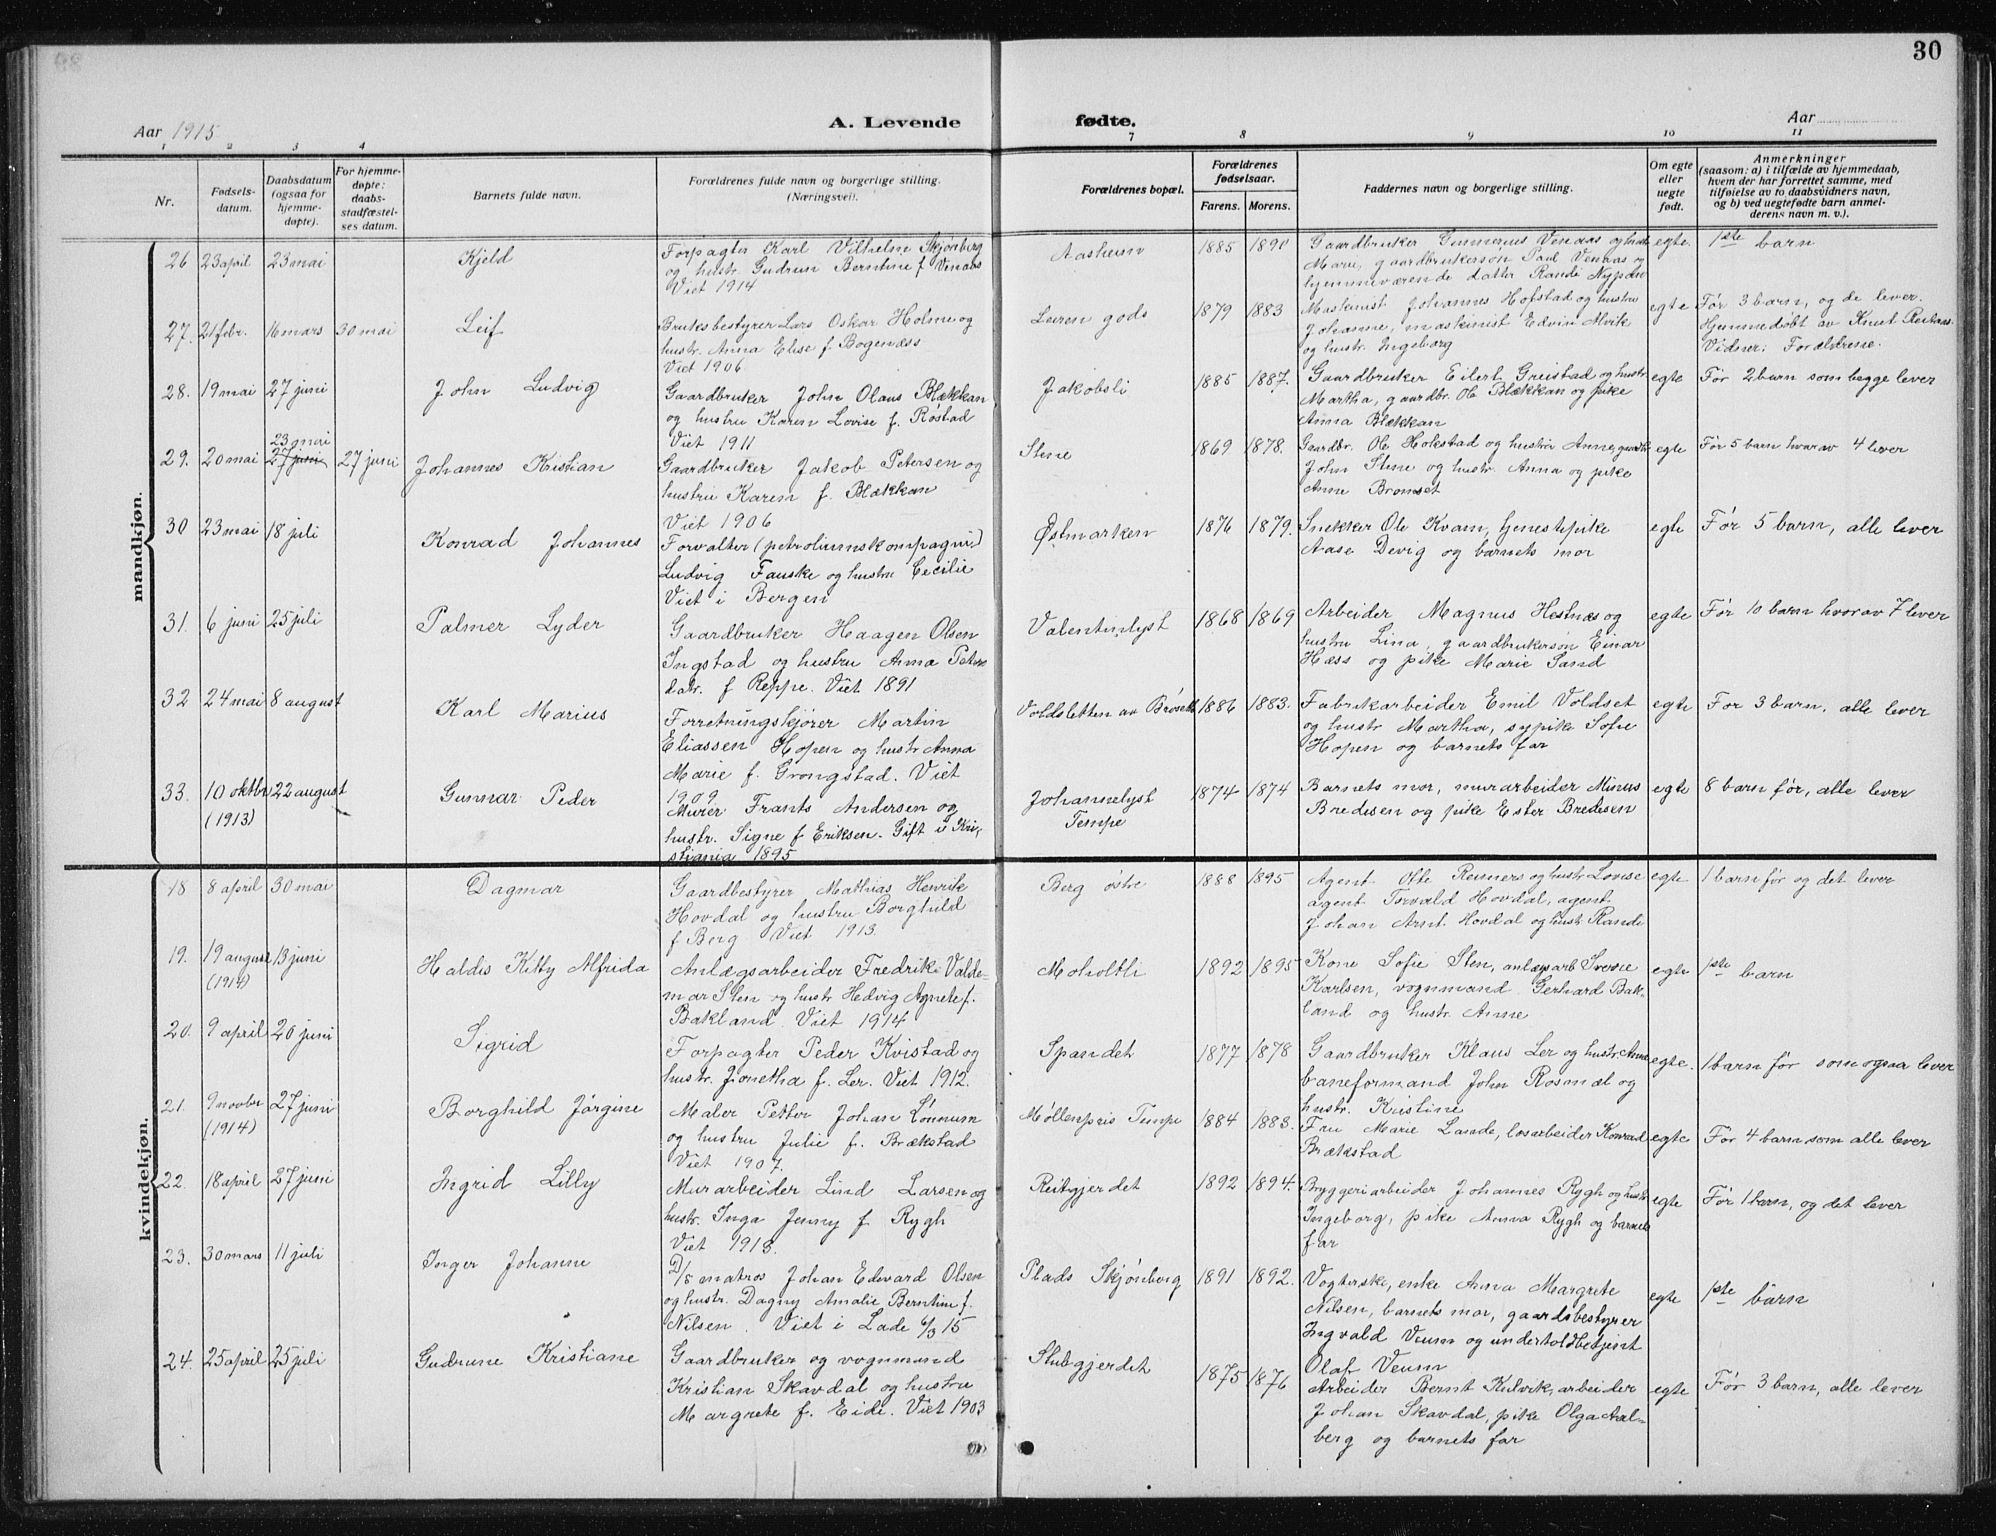 30
Aar 1915
A. Levende fødte.
Aar
1 2 3 4 7 8 9 10 11
Nr.
Fødsels-
datum.
Daabsdatum
(ogsaa for
hjemme-
døpte).
For hjemme-
døpte:
daabs-
stadfæstel-
ses datum.
Barnets fulde navn.
Forældrenes fulde navn og borgerlige stilling.
(Næringsvei).
Forældrenes bopæl.
Forældrenes
fødselsaar.
Farens. Morens.
Faddernes navn og borgerlige stilling.
Om egte
eller
uegte
født.
Anmerkninger
(saasom: a) i tilfælde av hjemmedaab,
hvem der har forrettet samme, med
tilføielse av to daabsvidners navn,
og b) ved uegtefødte barn anmel-
derens navn m. v.).
mandkjøn.
26 23 april 23 mai
Kjeld
Forpagter Karl Vilhelm Skjønberg
og hustr. Gudrun Berntine f. Venaas
Viet 1914
Aasheim
1885 1890
Gaardbruker Gunnerius Venaas og hustr
Marie, gaardbrukersøn Paul Venaas og
hjemmeværende datter Randi Nypan
egte.
1ste barn
27. 21 febr. 16 mars 30 mai
Leif
Bruksbestyrer Lars Oskar Holme og
hustr. Anna Elise f. Bogenæss
Viet 1906
Leiren gods
1879 1883
Maskinist Johannes Hofstad og hustru
Johanne, maskinist Edvin Alvik
og hustr. Ingeborg
egte
Før 3 barn, og de lever.
Hjemmedøbt av Knut
Vidner: Forældrene.
28. 19 mai 27 juni
John Ludvig
Gaardbruker John Olaus Blækkan
og hustru Karen Lovise f. Rostad
Viet 1911
Jakobsli
1885 1887.
Gaardbruker Eilert Greistad og hustr
Martha, gaardbr. Ole Blækkan og pike
Anna Blækkan
egte
Før 2 barn som begge lever
29. 20 mai 23 mai
27 juni 27 juni
Johannes Kristian
Gaardbruker Jakob Petersen og
hustru Karen f. Blækkan
Viet 1906
Stene
1869 1878.
Gaardbr. Ole Hokstad og hustru Anne, gaardbr
John Stene og hustr. Anna og pike
Anne Bromset
egte
Før 5 barn hvorav 4 lever
30 23 mai 18 juli
Konrad Johannes
Forvalter (petroliumskompagni)
Ludvig Fauske og hustru Cecilie
Viet i Bergen
Østmarken
1876 1879.
Snekker Ole Kvam, tjenestepike
Aase Devig og barnets mor
egte
Før 5 barn, alle lever
31. 6 juni 25 juli
Palmer Lyder
Gaardbruker Haagen Olsen
Ingstad og hustru Anna Peters
datr. f. Reppe. Viet 1891
Valentinlyst
1868 1869
Arbeider Magnus Hestnes og
hustru Lina, gaardbrukersøn Einar
Hæss og pike Marie Sand
egte
Før 10 barn hvorav 7 lever
32 24 mai 8 august
Karl Marius
Forretningskjører Martin
Eliassen Hopen og hustr. Anna
Marie f. Grongstad. Viet
1909
Voldsletten av Brøset
1886 1883.
Fabrikarbeider Emil Voldset
og hustr Martha, sypike Sofie
Hopen og barnets far
egte
Før 3 barn, alle lever
33. 10 oktbr 22 august
(1913)
Gunnar Peder
Murer Frants Andersen og
hustr. Signe f. Eriksen. Gift i Kri-
stiania 1895
Johannelyst
Tempe
1874 1874
Barnets mor, murarbeider Minus
Bredesen og pike Ester Bredesen
egte
8 barn før, alle lever
kvindekjøn.
18 8 april 30 mai
Dagmar
Gaardbestyrer Mathias Henrik
Hovdal og hustru Borghild
f. Berg Viet 1913.
Berg østre
1888 1895
Agent Otte Reimers og hustr. Lovise
agent Torvald Hovdal, agent
Johan Arnt Hovdal og hustr. Randi
egte
1 barn før og det lever
19. 19 august 13 juni
(1914)
Haldis Kitty Alfrida
Anlægsarbeider Fredrik Valde-
mar Sten og hustr. Hedvig Agnete f.
Bakland. Viet 1914
Moholtli
1892 1895
Kone Sofie Sten, anlægsarb Sverre
Karlsen, vognmand Gerhard Bak-
land og hustr. Anne
egte
1ste barn
20. 9 april 20 juni
Sigrid
Forpagter Peder Kvistad og
hustr. Jonetha f. Ler. Viet 1912.
Spandet
1877 1878
Gaardbruker Klaus Ler og hustr. Anne
baneformand John Rosmæl og
hustr. Kristine
egte.
1 barn før som ogsaa lever
21. 9 novbr 27 juni
(1914)
Borghild Jørgine
Maler Petter Johan Lönnum
og hustru Julie f. Brækstad
Viet 1907.
Møllenpris Tempe
1884 1883.
Fru Marie Lande, losarbeider Konrad
Brækstad
egte
Før 4 barn som alle lever
22. 18 april 27 juni
Ingrid Lilly
Murarbeider Lind Larsen og
hustr. Inga Jenny f. Rygh
Viet 1913.
Reitgjerdet
1892 1894.
Bryggeriarbeider Johannes Rygh og hustr
Ingeborg, pike Anna Rygh og barnets
far
egte
Før 1 barn, og det lever
23. 30 mars 11 juli
Inger Johanne
D/s matros Johan Edvard Olsen
og hustr. Dagny Amalie Berntine f.
Nilsen. Viet i Lade 6/3 15
Plads Skjønberg
1891 1892.
Vogterske, enke Anna Margrete
Nilsen, barnets mor, gaardsbestyrer
Ingvald Veum og underholdbetjent
Olaf Veum
egte
1ste barn
24. 25 april 25 juli
Gudrune Kristiane
Gaardbruker og vognmand
Kristian Skavdal og hustru
Margrete f. Eide. Viet 1903
Stubgjerdet
1875 1876
Arbeider Bernt Kulvik, arbeider
Johan Skavdal, pike Olga Aal-
berg og barnets far
egte
Før 3 barn, alle lever